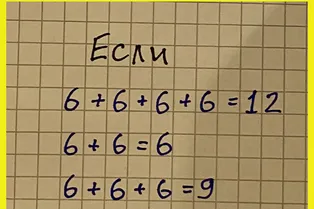 Если
6 + 6 + 6 + 6 = 12
6 + 6 = 6
6 + 6 + 6 = 9